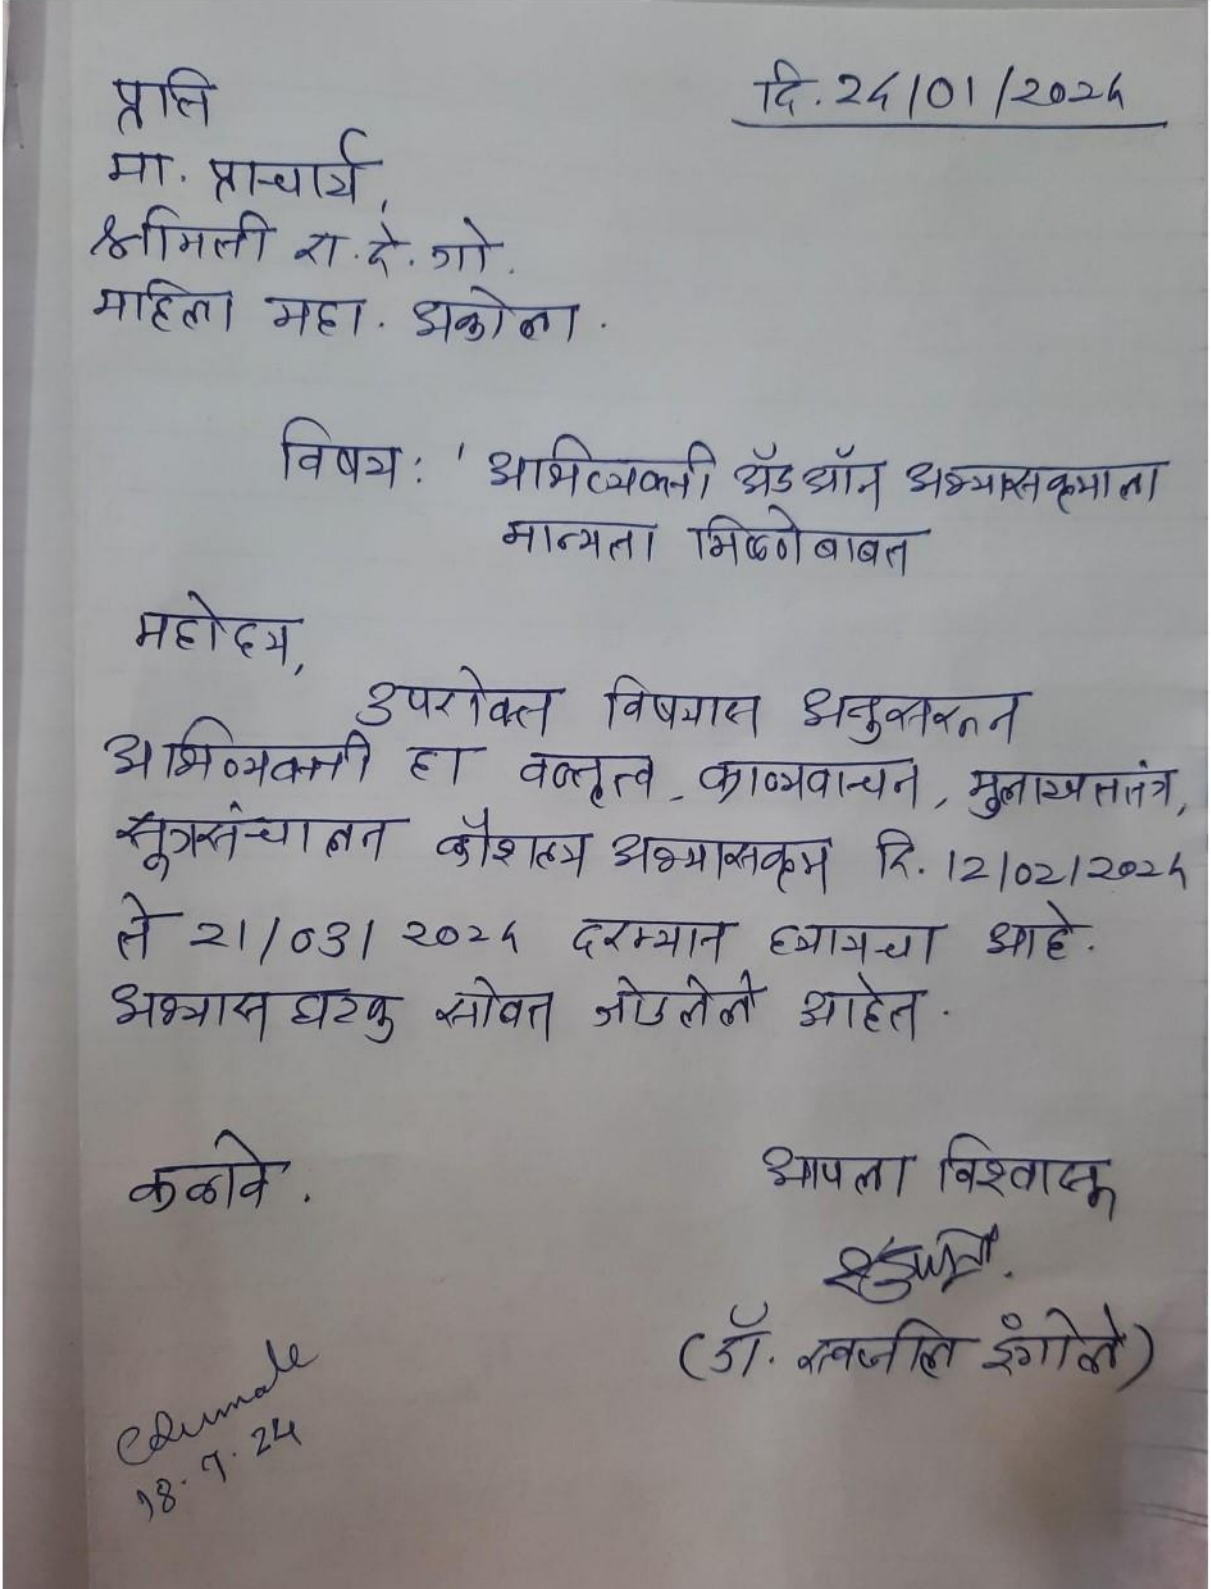 प्रति
दि. 24/01/2024
मा. प्राचार्य,
श्रीमती रा.दे.गो.
महिला महा. अकोला.
विषय: ' अभिव्यक्ती ॲड ऑन अभ्यासक्रमाला
मान्यता मिळणेबाबत
महोदय,
उपरोक्त विषयास अनुसरून
अभिव्यक्ती हा वक्तृत्व, काव्यवाचन, मुलाखततंत्र,
सूत्रसंचालन कौशल्य अभ्यासक्रम दि. 12/02/2024
ते 21/03/2024 दरम्यान घ्यायचा आहे.
अभ्यास घटक सोबत जोडलेले आहेत.
कळावे.
आपला विश्वासू
(डॉ. इंगोले)
18.7.24